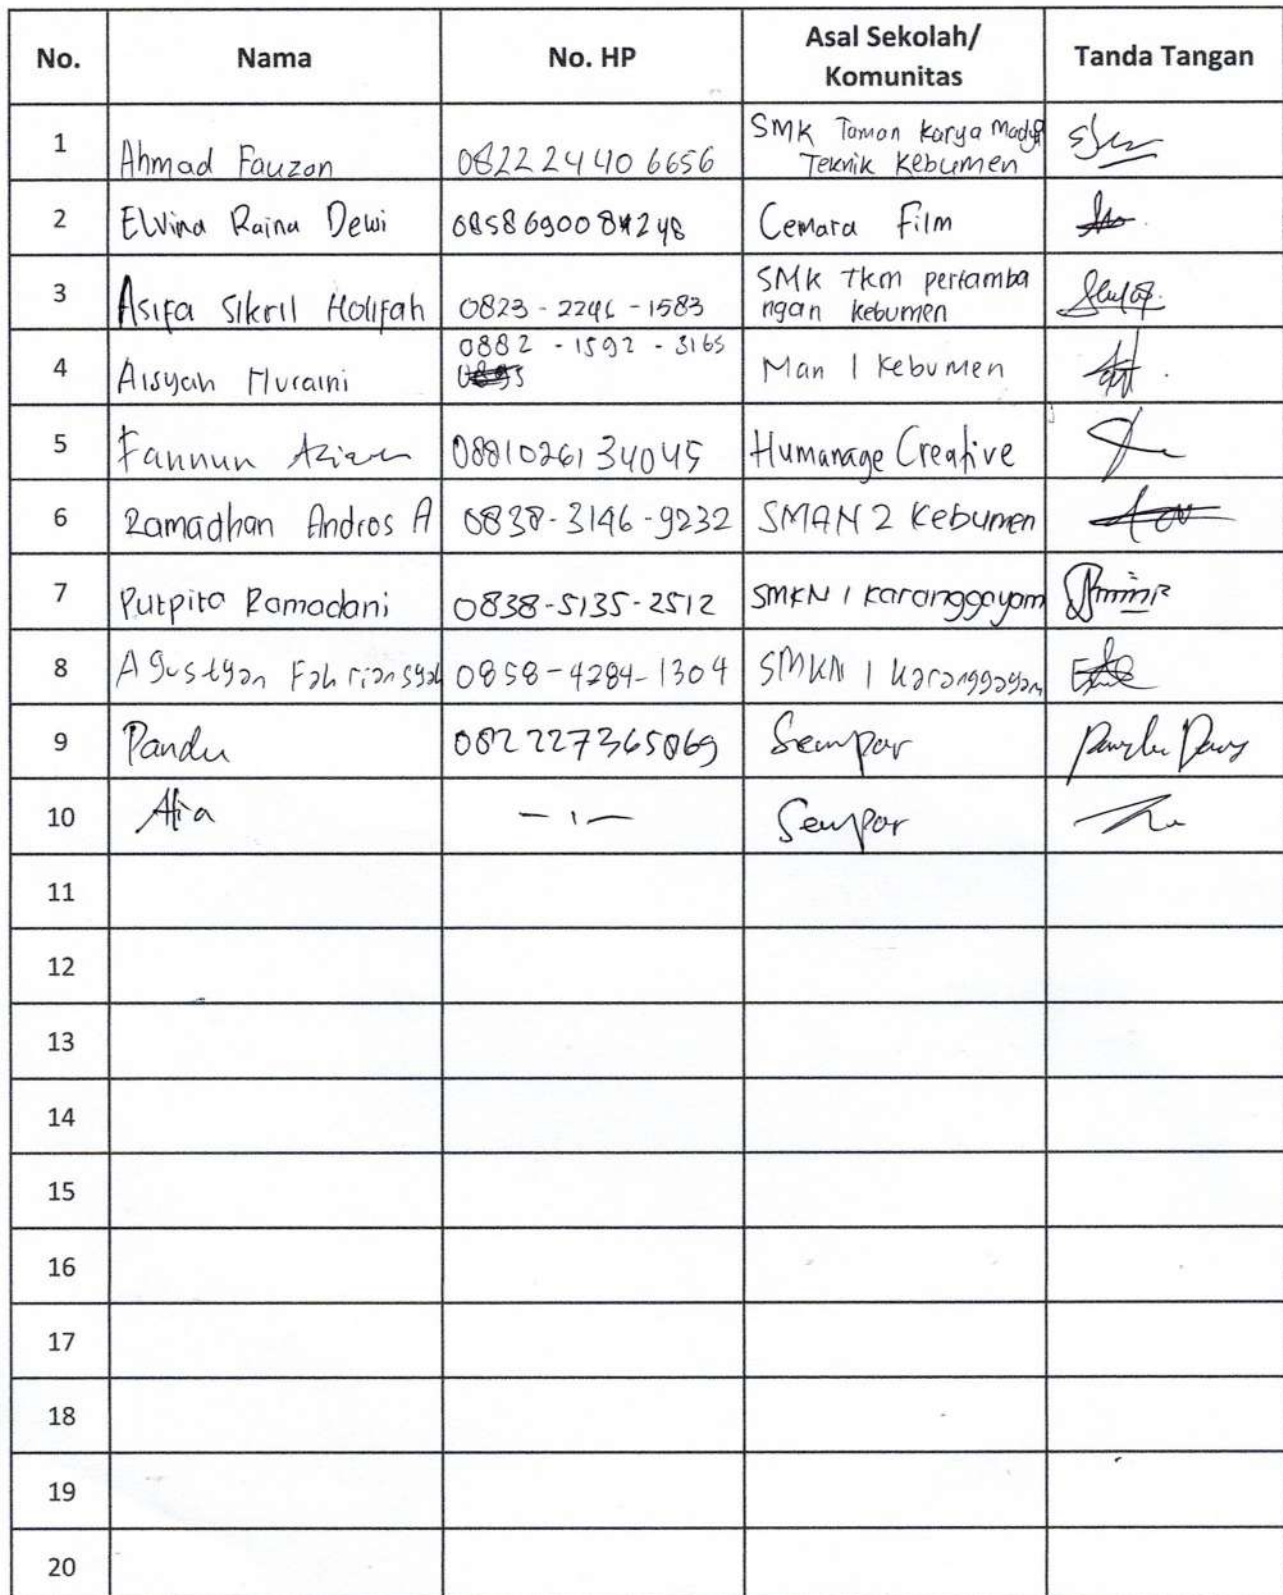 No. Nama No. HP Asal Sekolah/ Komunitas Tanda Tangan
1 Ahmad Fauzan 082224406656 SMK Taman Karya Madya Teknik Kebumen
2 Elvina Raina Dewi 0858690084248 Cemara Film
3 Asifa Sikril Holifah 0823-2246-1583 SMK TKM pertamba ngan kebumen
4 Aisyah Nuraini 0882-1592-3165 Man 1 Kebumen
5 Fannun 0881026134045 Humanage Creative
6 Ramadhan Andros A 0838-3146-9232 SMAN 2 Kebumen
7 Putpita Ramadani 0838-5135-2512 SMKN 1 Karanggayam
8 Agustyan Fahriansyah 0858-4284-1304 SMKN 1 Karanggayam
9 Pandu 082227365069 Sempor
10 Afia — ı — Sempor
11
12
13
14
15
16
17
18
19
20